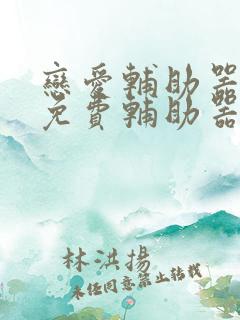 戀愛輔助器
免費輔助器
林洪揚
未經同意禁止轉載